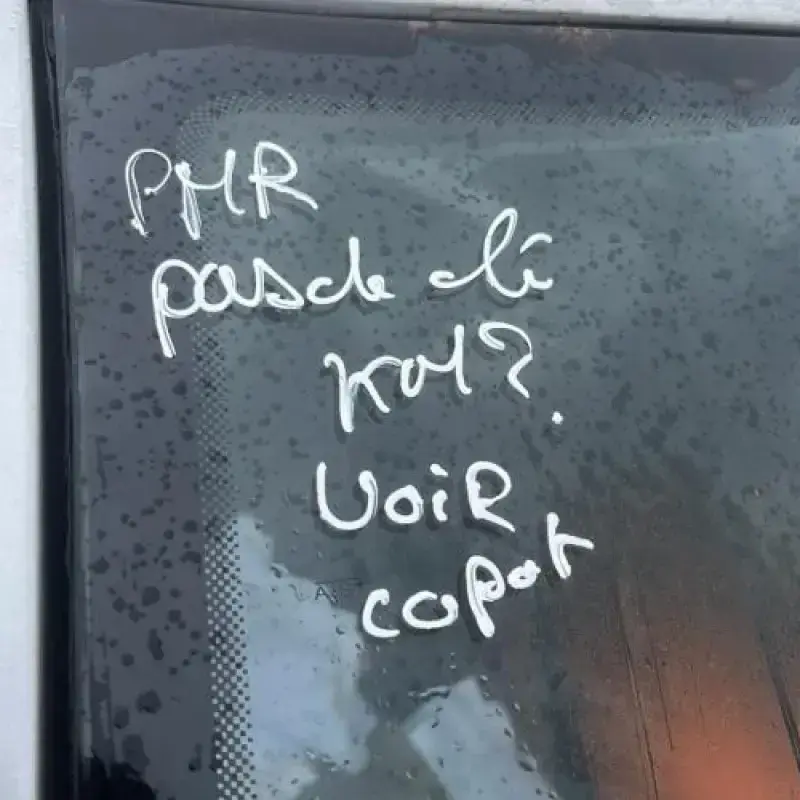 PMR
pas de clé
KM?
VOIR
capot